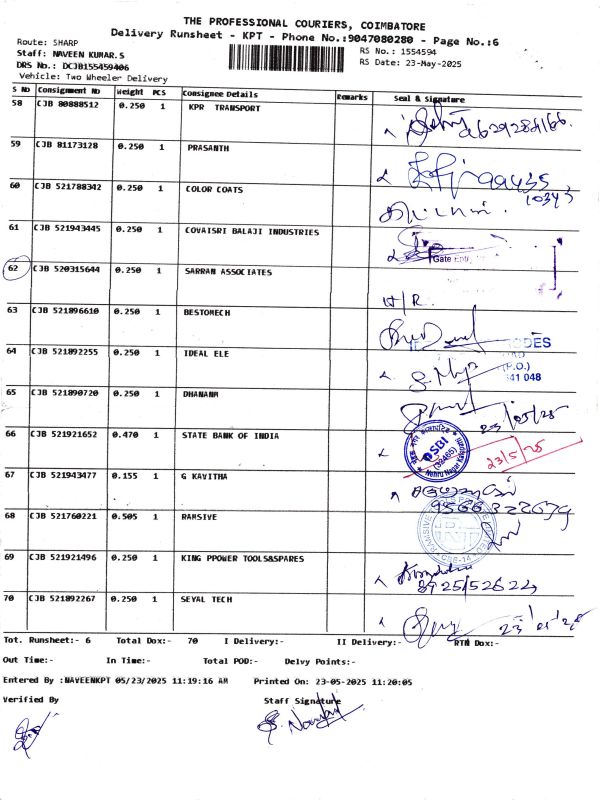 THE PROFESSIONAL COURIERS, COIMBATORE
Delivery Runsheet - KPT - Phone No.:9047080280 - Page No.:6
Route: SHARP
Staff: NAVEEN KUMAR.S
DRS No.: DCJB155459406
Vehicle: Two Wheeler Delivery
RS No.: 1554594
RS Date: 23-May-2025
S No Consignment No Weight PCS Consignee Details Remarks Seal & Signature
58 CJB 80888512 0.250 1 KPR TRANSPORT
59 CJB 81173128 0.250 1 PRASANTH
60 CJB 521788342 0.250 1 COLOR COATS
61 CJB 521943445 0.250 1 COVAISRI BALAJI INDUSTRIES
Gate Entry
62 CJB 520315644 0.250 1 SARRAN ASSOCIATES
H/R
63 CJB 521896610 0.250 1 BESTOMECH
64 CJB 521892255 0.250 1 IDEAL ELE
(P.O.)
641 048
65 CJB 521890720 0.250 1 DHANANM
23/05/25
66 CJB 521921652 0.470 1 STATE BANK OF INDIA
SBI
23/5/25
67 CJB 521943477 0.155 1 G KAVITHA
68 CJB 521760221 0.505 1 RAMSIVE
69 CJB 521921496 0.250 1 KING PPOWER TOOLS&SPARES
8925152622
70 CJB 521892267 0.250 1 SEYAL TECH
Tot. Runsheet:- 6 Total Dox:- 70 I Delivery:- II Delivery:- RTN Dox:-
Out Time:- In Time:- Total POD:- Delvy Points:-
Entered By :NAVEENKPT 05/23/2025 11:19:16 AM Printed On: 23-05-2025 11:20:05
Verified By Staff Signature